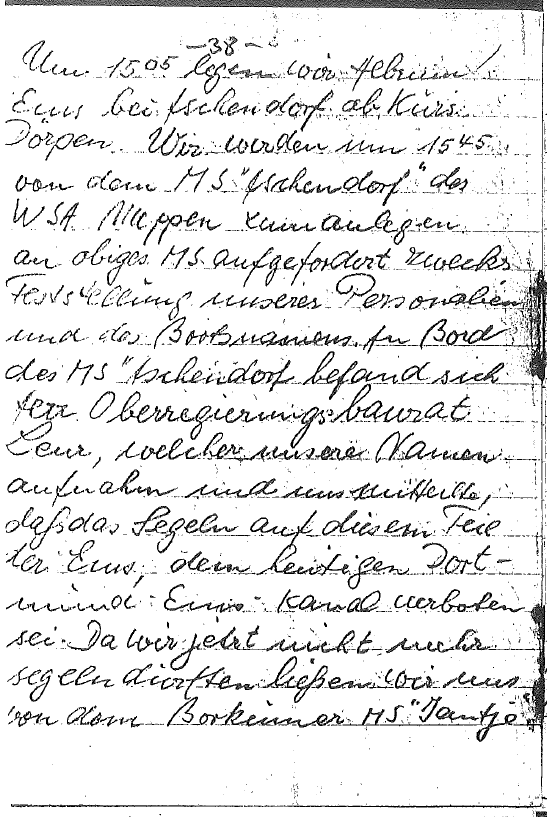 -38-
Um 15 05 legen wir
Ems bei Aschendorf ab Kurs
Dörpen. Wir werden um 15 45
von dem MS "Aschendorf" des
WSA Meppen zum anlegen
an obiges MS aufgefordert zwecks
Feststellung unserer Personalien
und des Bootsnamens. An Bord
des MS "Aschendorf befand sich
Herr Oberregierungsbaurat
welcher unsere Namen
aufnahm und uns mitteilte,
daß das Segeln auf diesem Teile
der Ems, dem heutigen Dort-
mund-Ems-Kanal verboten
sei. Da wir jetzt nicht mehr
segeln dürften ließen wir uns
von dem Borkumer MS "Jantje"